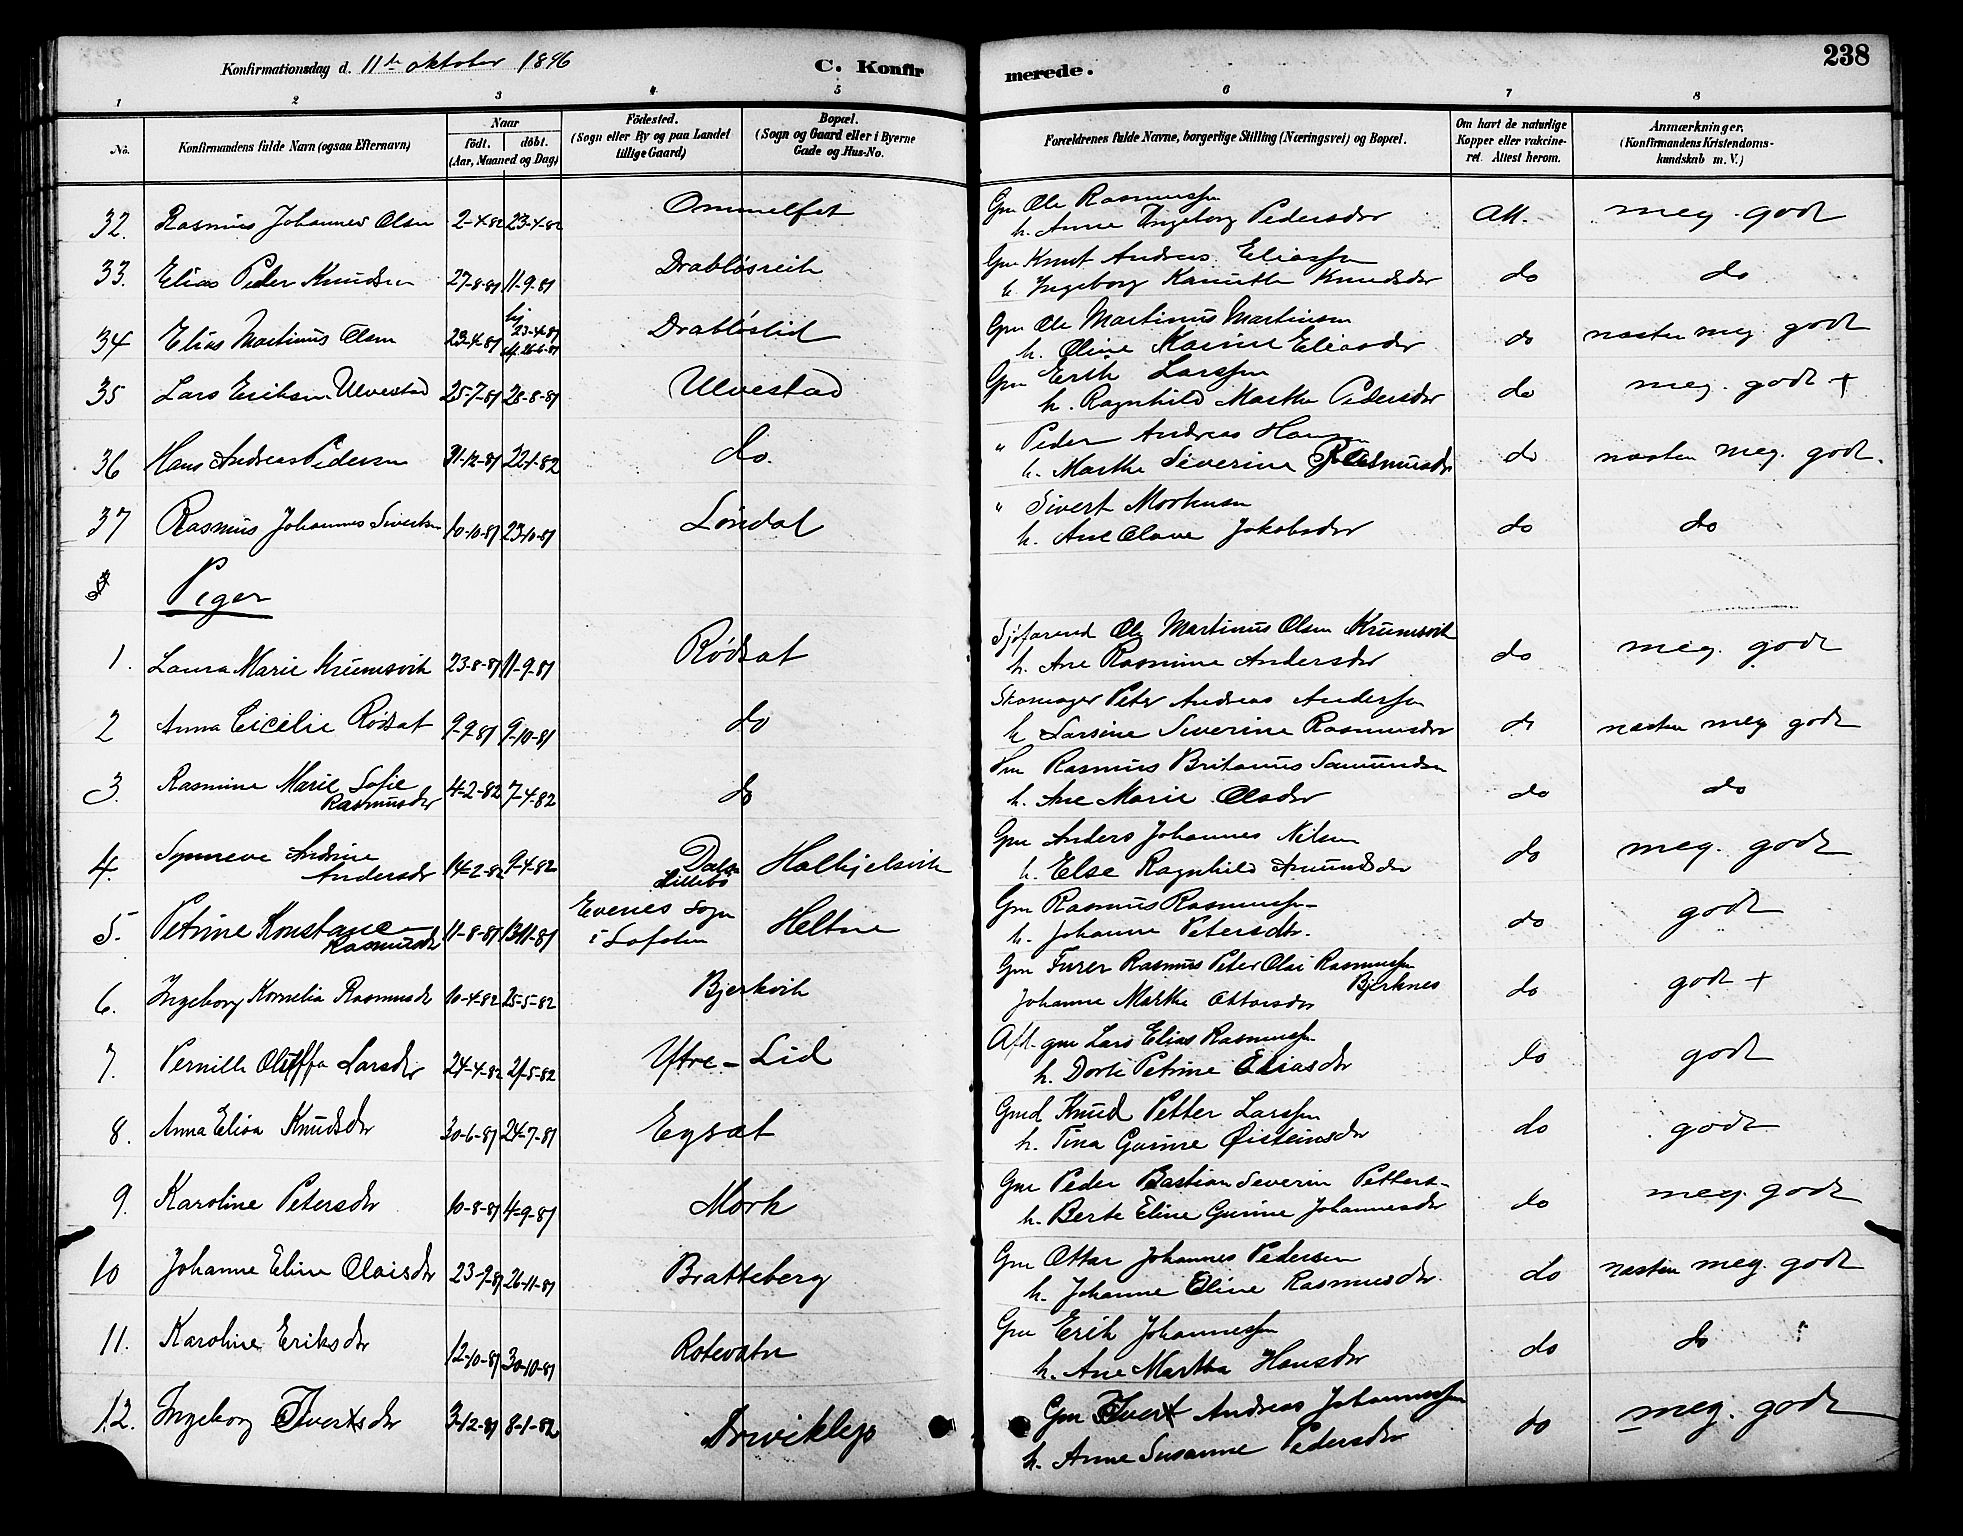 Konfirmationsdag d. 11te oktober 1896 C. Konfirmerede. 238
1 2 3 4 5 6 7 8
No. Konfirmandens fulde Navn (ogsaa Efternavn) Naar födt. döbt. (Aar, Maaned og Dag) Födested. (Sogn eller By og paa Landet tillige Gaard) Bopæl. (Sogn og Gaard eller i Byerne Gade og Hus-No. Forældrenes fulde Navne, borgerlige Stilling (Næringsvei) og Bopæl. Om havt de naturlige Kopper eller vakcineret. Attest herom. Anmærkninger. (Konfirmandens Kristendomskundskab m. V.)
32. Rasmus Johannes Olsen 2-4-82 23-4-82 Ommelfet Gm Ole Rasmussen Att. meg. godt
h. Anne Ingeborg Pedersdr
33. Elias Peder Knudsen 27-8-81 11-9-81 Drabløsreit Gm Knut Andreas Eliassen do do
h. Ingeborg Knudsdr
34 Elias Martinus Olsen 23-4-81 hj 23-4-81 Drabløslid Gm Ole Martinus Martinsen do næsten meg godt
h. Oline Eliasdr
35 Lars Eriksen Ulvestad 25-7-81 28-8-81 Ulvestad Gm Erik Larssen do meg. godt +
h. Ragnhild Marthe Pedersdr
36 Hans Andreas Pedersen 31-12-81 22-1-82 do. " Peder Andreas Hansen do næsten meg. godt.
h. Marthe Severine Rasmusdr
37 Rasmus Johannes Sivertsen 10-10-81 23-10-81 Løndal " Sivert Morkusen do do
h. Ane Olave Jakobsdr
Piger
1. Laura Marie Krumsvik 23-8-81 11-9-81 Rødsæt Sjøfarend Ole Martinus Olsen Krumsvik do meg. godt
h. Ane Rasmine Andersdr
2 Anna Cicelie Rødsæt 9-9-81 9-10-81 do Skomager Peter Andreas Andersen do næsten meg godt
h Larsine Severine Rasmusdr
3. Rasmine Marie Sofie Rasmusdr 4-2-82 7-4-82 do Hm Rasmus Britanus Samundsen do do
h. Ane Marie Olsdr
4. Synneve Andrine Andersdr 14-2-82 9-4-82 Dale Lillebø Halkjelsvik Gm Anders Johannes Nilsen do meg. godt
h. Else Ragnhild Amundsdr
5. Petrine Konstance Rasmusdr 11-8-81 13-11-81 Evenes Sogn i Lofoten Heltne Gm Rasmus Rasmussen do godt
h. Johanne Petersdtr.
6. Ingeborg Kornelia Rasmusdr 10-4-82 25-5-82 Bjerkvik Gm Furer Rasmus Peter Olai Rasmussen Bjerknes do godt +
Johanne Marthe Ottarsdr
7. Pernille Oluffa Larsdtr 24-4-82 21-5-82 Ytre-Lid Afd. gm Lars Elias Rasmussen do godt
h. Dorte Petrine Eliasdr
8. Anna Elisa Knudsdr 30-6-81 24-7-81 Eysæt Gmd Knud Petter Larssen do godt
h. Tina Gurine Øisteinsdr
9. Karoline Petersdr 10-8-81 4-9-81 Mork Gm Peder Bastian Severin Petters- do meg. godt
h. Berte Eline Gurine Johannesdr
10 Johanne Eline Olaisdr 23-9-81 26-11-81 Bratteberg Gm Ottar Johannes Pedersen do næsten meg. godt
h. Johanne Eline Rasmusdr.
11. Karoline Eriksdr 12-10-81 30-10-81 Rotevatn Gm Erik Johannessen do do
h. Ane Martha Hansdr
12. Ingeborg Ivertsdr 3-12-81 8-1-82 Gm Ivert Andreas Johannessen do meg. godt
h. Anne Susanne Pedersdr